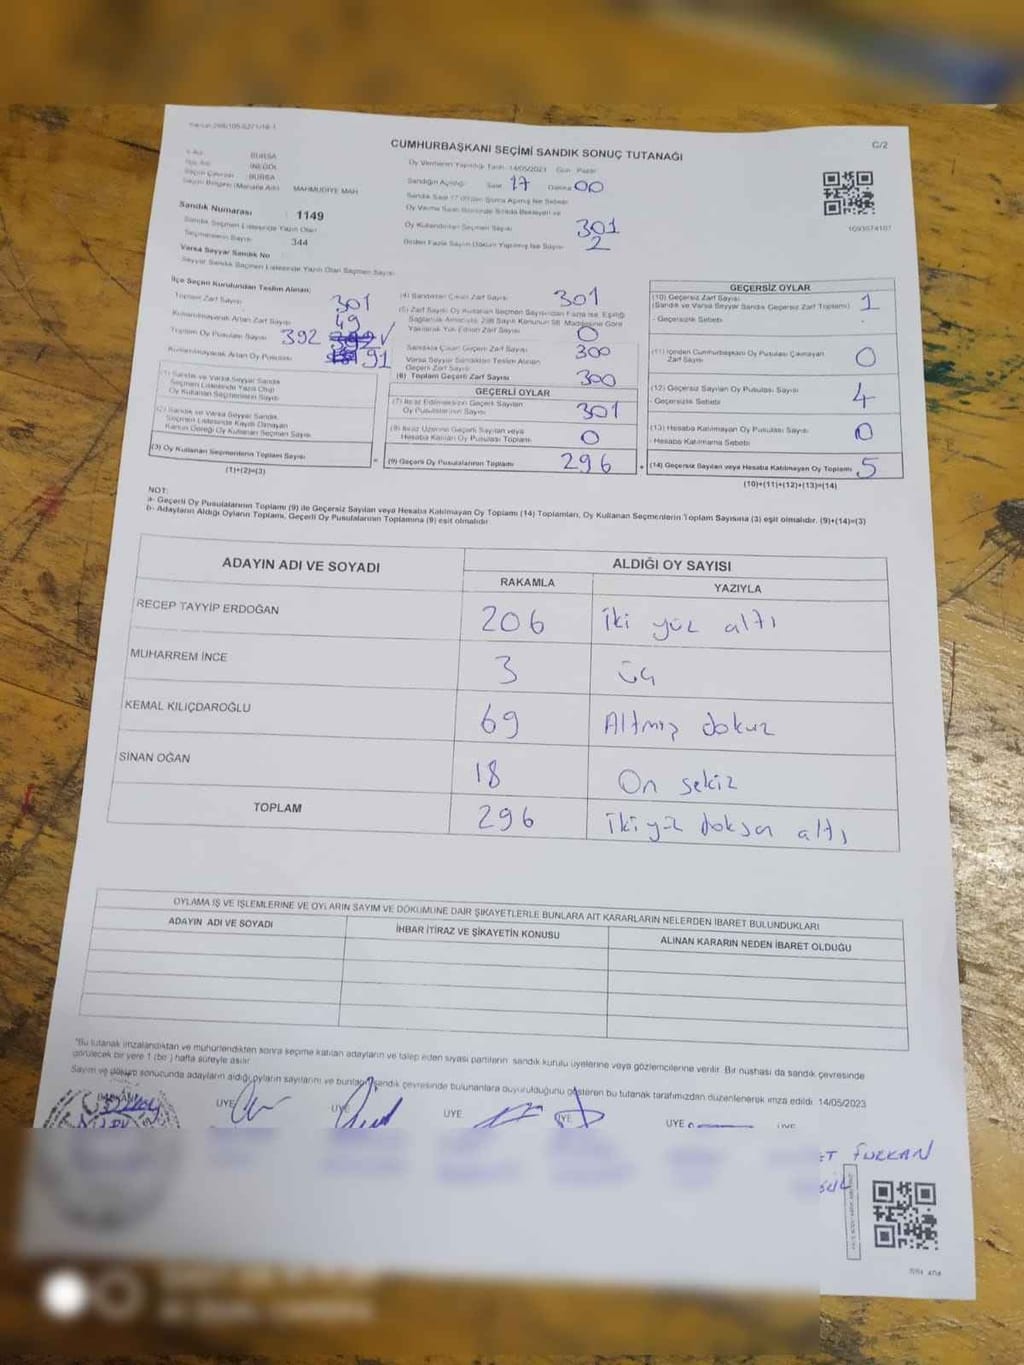 C/2
CUMHURBAŞKANI SEÇİMİ SANDIK SONUÇ TUTANAĞI
BURSA
İNEGÖL
BURSA
MAHMUDİYE MAH
Oy Vermenin Yapıldığı Tarih 14/05/2023 Gün Pazar
Sandığın Açılışı Saat 17 Dakika 00
Sandık Numarası 1149
Sandık Seçmen Listesinde Yazılı Olan
Seçmenlerin Sayısı 344
Varsa Seyyar Sandık No
Seyyar Sandık Seçmen Listesinde Yazılı Olan Seçmen Sayısı
Oy Kullandırılan Seçmen Sayısı 301
Birden Fazla Sayım Döküm Yapılmış ise Sayısı 2
1693674107
İlçe Seçim Kurulundan Teslim Alınan:
Toplam Zarf Sayısı 301
Kullanılmayarak Artan Zarf Sayısı 49
Toplam Oy Pusulası Sayısı 392
Kullanılmayarak Artan Oy Pusulası 91
(1) Sandık ve Varsa Seyyar Sandık
Seçmen Listesinde Yazılı Olup
Oy Kullanan Seçmenlerin Sayısı
(2) Sandık ve Varsa Seyyar Sandık
Seçmen Listesinde Kaydı Olmayan
Kanun Gereği Oy Kullanan Seçmen Sayısı
(3) Oy Kullanan Seçmenlerin Toplam Sayısı
(1)+(2)=(3)
(4) Sandıktan Çıkan Zarf Sayısı 301
(5) Zarf Sayısı Oy Kullanan Seçmen Sayısından Fazla ise Eşitliği
Sağlamak Amacıyla, 298 Sayılı Kanunun 98. Maddesine Göre
Yakılarak Yok Edilen Zarf Sayısı 0
Sandıkta Çıkan Geçerli Zarf Sayısı 300
Varsa Seyyar Sandıktan Teslim Alınan
Geçerli Zarf Sayısı
(6) Toplam Geçerli Zarf Sayısı 300
GEÇERLİ OYLAR
(7) İtiraz Edilmeksizin Geçerli Sayılan
Oy Pusulalarının Sayısı 301
(8) İtiraz Üzerine Geçerli Sayılan veya
Hesaba Katılan Oy Pusulası Toplamı 0
(9) Geçerli Oy Pusulalarının Toplamı 296
GEÇERSİZ OYLAR
(10) Geçersiz Zarf Sayısı
(Sandık ve Varsa Seyyar Sandık Geçersiz Zarf Toplamı) 1
- Geçersizlik Sebebi
(11) İçinden Cumhurbaşkanı Oy Pusulası Çıkmayan
Zarf Sayısı 0
(12) Geçersiz Sayılan Oy Pusulası Sayısı 4
- Geçersizlik Sebebi
(13) Hesaba Katılmayan Oy Pusulası Sayısı 0
- Hesaba Katılmama Sebebi
(14) Geçersiz Sayılan veya Hesaba Katılmayan Oy Toplamı 5
(10)+(11)+(12)+(13)=(14)
NOT:
a- Geçerli Oy Pusulalarının Toplamı (9) ile Geçersiz Sayılan veya Hesaba Katılmayan Oy Toplamı (14) Toplamları, Oy Kullanan Seçmenlerin Toplam Sayısına (3) eşit olmalıdır. (9)+(14)=(3)
b- Adayların Aldığı Oyların Toplamı, Geçerli Oy Pusulalarının Toplamına (9) eşit olmalıdır.
ADAYIN ADI VE SOYADI
ALDIĞI OY SAYISI
RAKAMLA YAZIYLA
RECEP TAYYİP ERDOĞAN 206 iki yüz altı
MUHARREM İNCE 3 üç
KEMAL KILIÇDAROĞLU 69 Altmış dokuz
SİNAN OĞAN 18 On sekiz
TOPLAM 296 iki yüz doksan altı
OYLAMA İŞ VE İŞLEMLERİNE VE OYLARIN SAYIM VE DÖKÜMÜNE DAİR ŞİKAYETLERLE BUNLARA AİT KARARLARIN NELERDEN İBARET BULUNDUKLARI
ADAYIN ADI VE SOYADI
İHBAR İTİRAZ VE ŞİKAYETİN KONUSU
ALINAN KARARIN NEDEN İBARET OLDUĞU
*Bu tutanak imzalandıktan ve mühürlendikten sonra seçime katılan adayların ve talep eden siyasi partilerin sandık kurulu üyelerine veya gözlemcilerine verilir. Bir nüshası da sandık çevresinde
görülecek bir yere 1 (bir) hafta süreyle asılır.
Sayım ve döküm sonuzunda adayların aldığı oyların sayılarını ve bunların sandık çevresinde bulunanlara duyurulduğunu gösteren bu tutanak tarafımızdan düzenlenerek imza edildi. 14/05/2023
ÜYE ÜYE ÜYE ÜYE ÜYE ÜYE
FURKAN